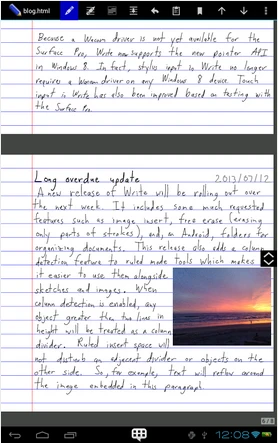 blog.html
Because a Wacom driver is not yet available for the
Surface Pro, Write now supports the new pointer API
in Windows 8. In fact, stylus input to Write no longer
requires a Wacom driver on any Windows 8 device. Touch
input in Write has also been improved based on testing with
the Surface Pro.
Long overdue update 2013/07/12
A new release of Write will be rolling out over
the next week. It includes some much requested
features such as image insert, free erase (erasing
only parts of strokes), and, on Android, folders for
organizing documents. This release also adds a column
detection feature to ruled mode tools which makes
it easier to use them alongside
sketches and images. When
column detection is enabled, any
object greater than two lines in
height will be treated as a column
divider. Ruled insert space will
not disturb an adjacent divider or objects on the
other side. So, for example, text will reflow around
the image embedded in this paragraph.
12:08